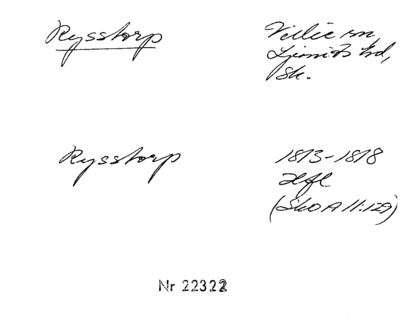 Rysstorp
Villie sn,
Ljunits hd,
Sk.
Rysstorp
1813-1818
Hfl
(SkO A II:129)
Nr 22322